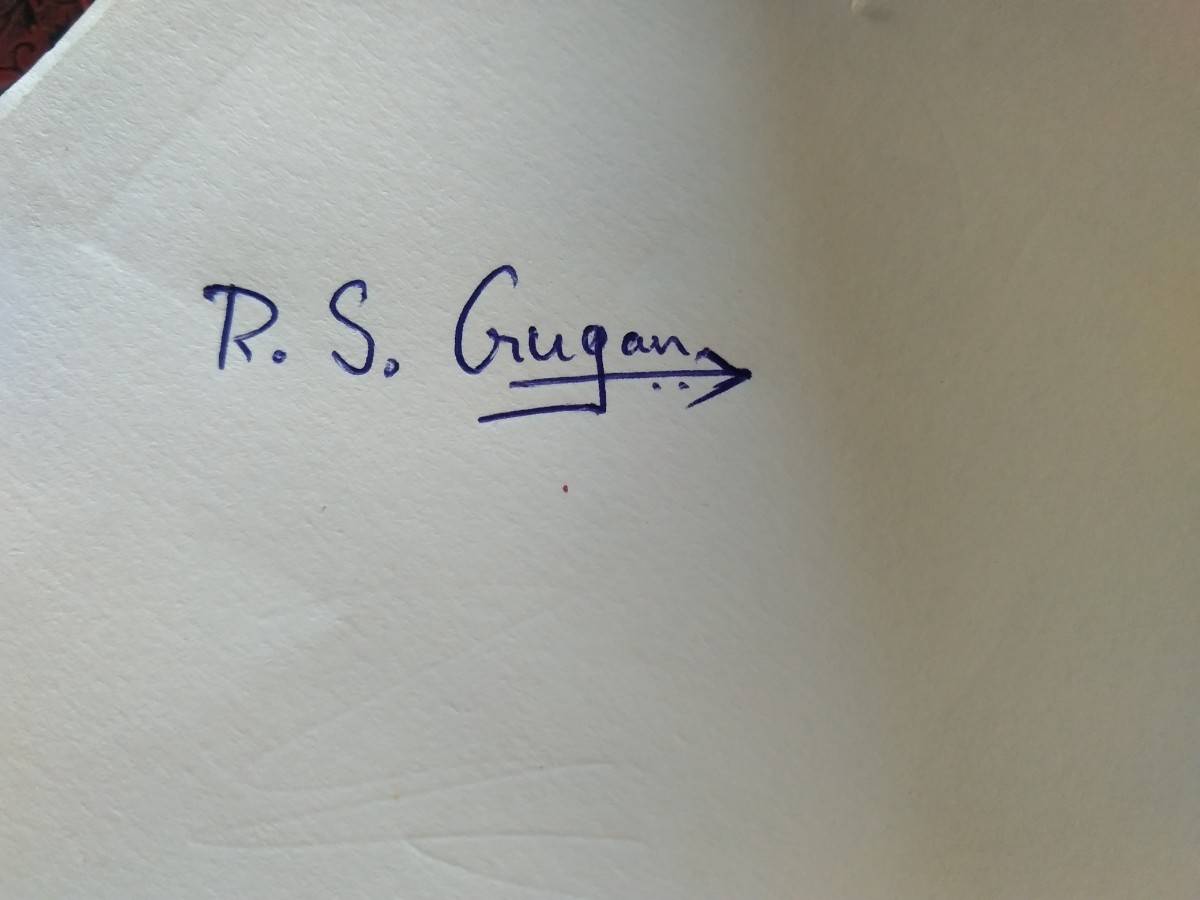 R. S. Gugan